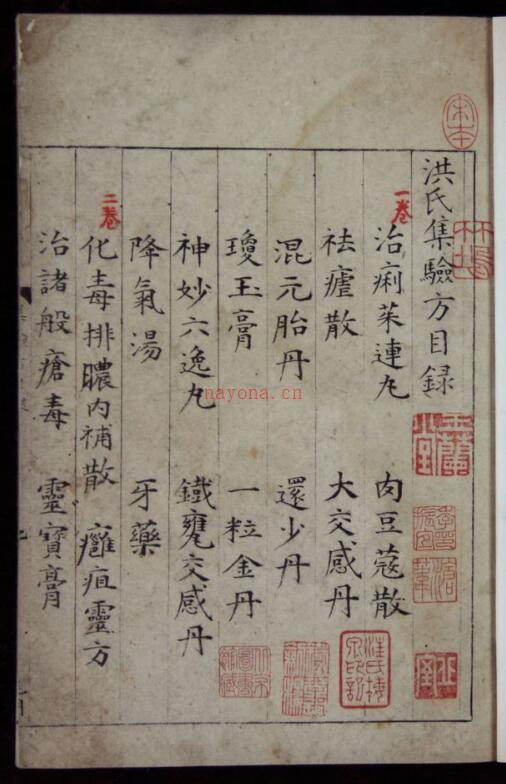 洪氏集驗方目録
一卷
治痢茱連丸 肉豆蔻散
袪瘧散 大交感丹
混元胎丹 還少丹
瓊玉膏 一粒金丹
神妙六逸丸 鐵甕交感丹
降氣湯 牙藥
二卷
化毒排膿内補散 癰疽靈方
治諸般瘡毒 靈寶膏
宋本
nayona.cn